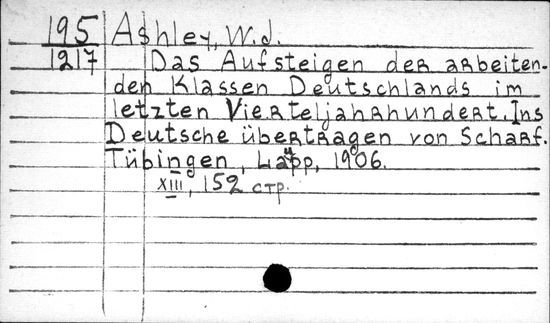 195 Ashley, W.J.
1217 Das Aufsteigen der arbeiten-
den Klassen Deutschlands im
letzten Vierteljahrhundert. Ins
Deutsche übertragen von Scharf.
Tübingen, Läpp, 1906.
XIII, 152 стр.